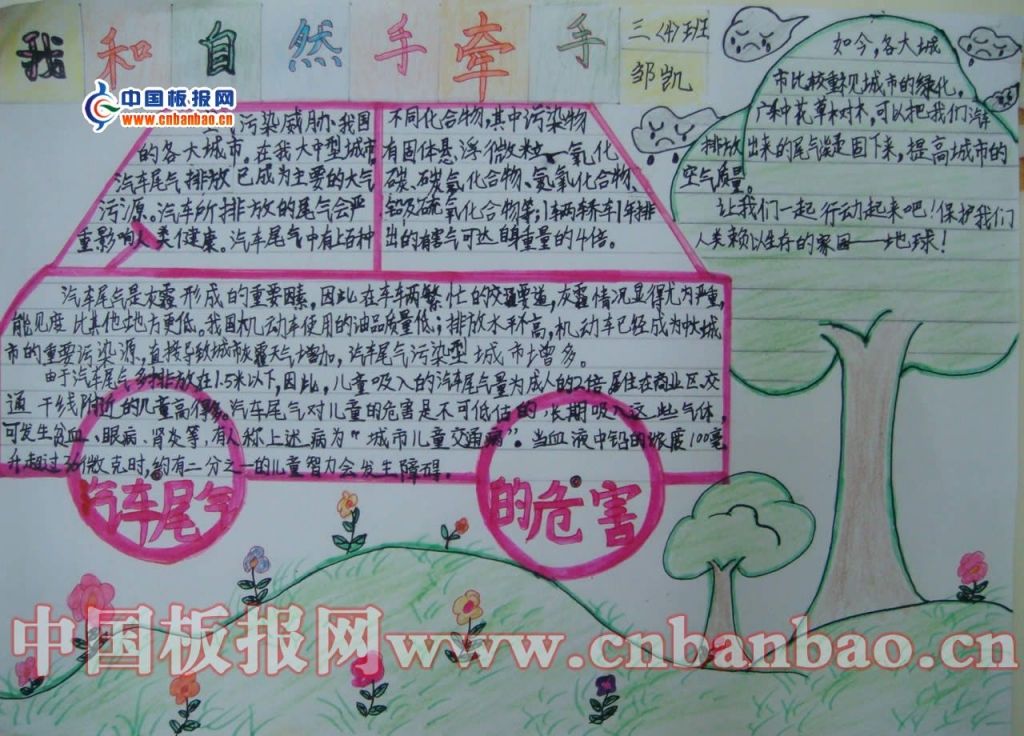 我和自然手牵手
三(4)班
邹凯
中国板报网
www.cnbanbao.cn
污染威胁我国
的各大城市。在我大中型城市
汽车尾气排放已成为主要的大气
污源。汽车所排放的尾气会严
重影响人类健康。汽车尾气中有上百种
不同化合物,其中污染物
有固体悬浮微粒、一氧化
碳、碳氢化合物、氮氧化合物、
铅及硫氧化合物等;1辆轿车1年排
出的有害气可达自身重量的4倍。
汽车尾气是灰霾形成的重要因素,因此在车车两繁忙的交通要道,灰霾情况显得尤为严重,
能见度比其他地方更低。我国机动车使用的油品质量低;排放水平不高,机动车已经成为城
市的重要污染源,直接导致城市灰霾天气增加,汽车尾气污染型城市增多。
由于汽车尾气多排放在1.5米以下,因此,儿童吸入的汽车尾气量为成人的2倍。居住在商业区、交
通干线附近的儿童高得多。汽车尾气对儿童的危害是不可低估的,长期吸入这些气体,
可发生贫血、眼病、肾炎等,有人称上述病为“城市儿童交通病”。当血液中铅的浓度100毫
升超过36微克时,约有二分之一的儿童智力会发生障碍。
汽车尾气
的危害
如今,各大城
市比较重视城市的绿化。
广种花草树木,可以把我们汽车
排放出来的尾气淡固下来,提高城市的
空气质量。
让我们一起行动起来吧!保护我们
人类赖以生存的家园——地球!
中国板报网www.cnbanbao.cn